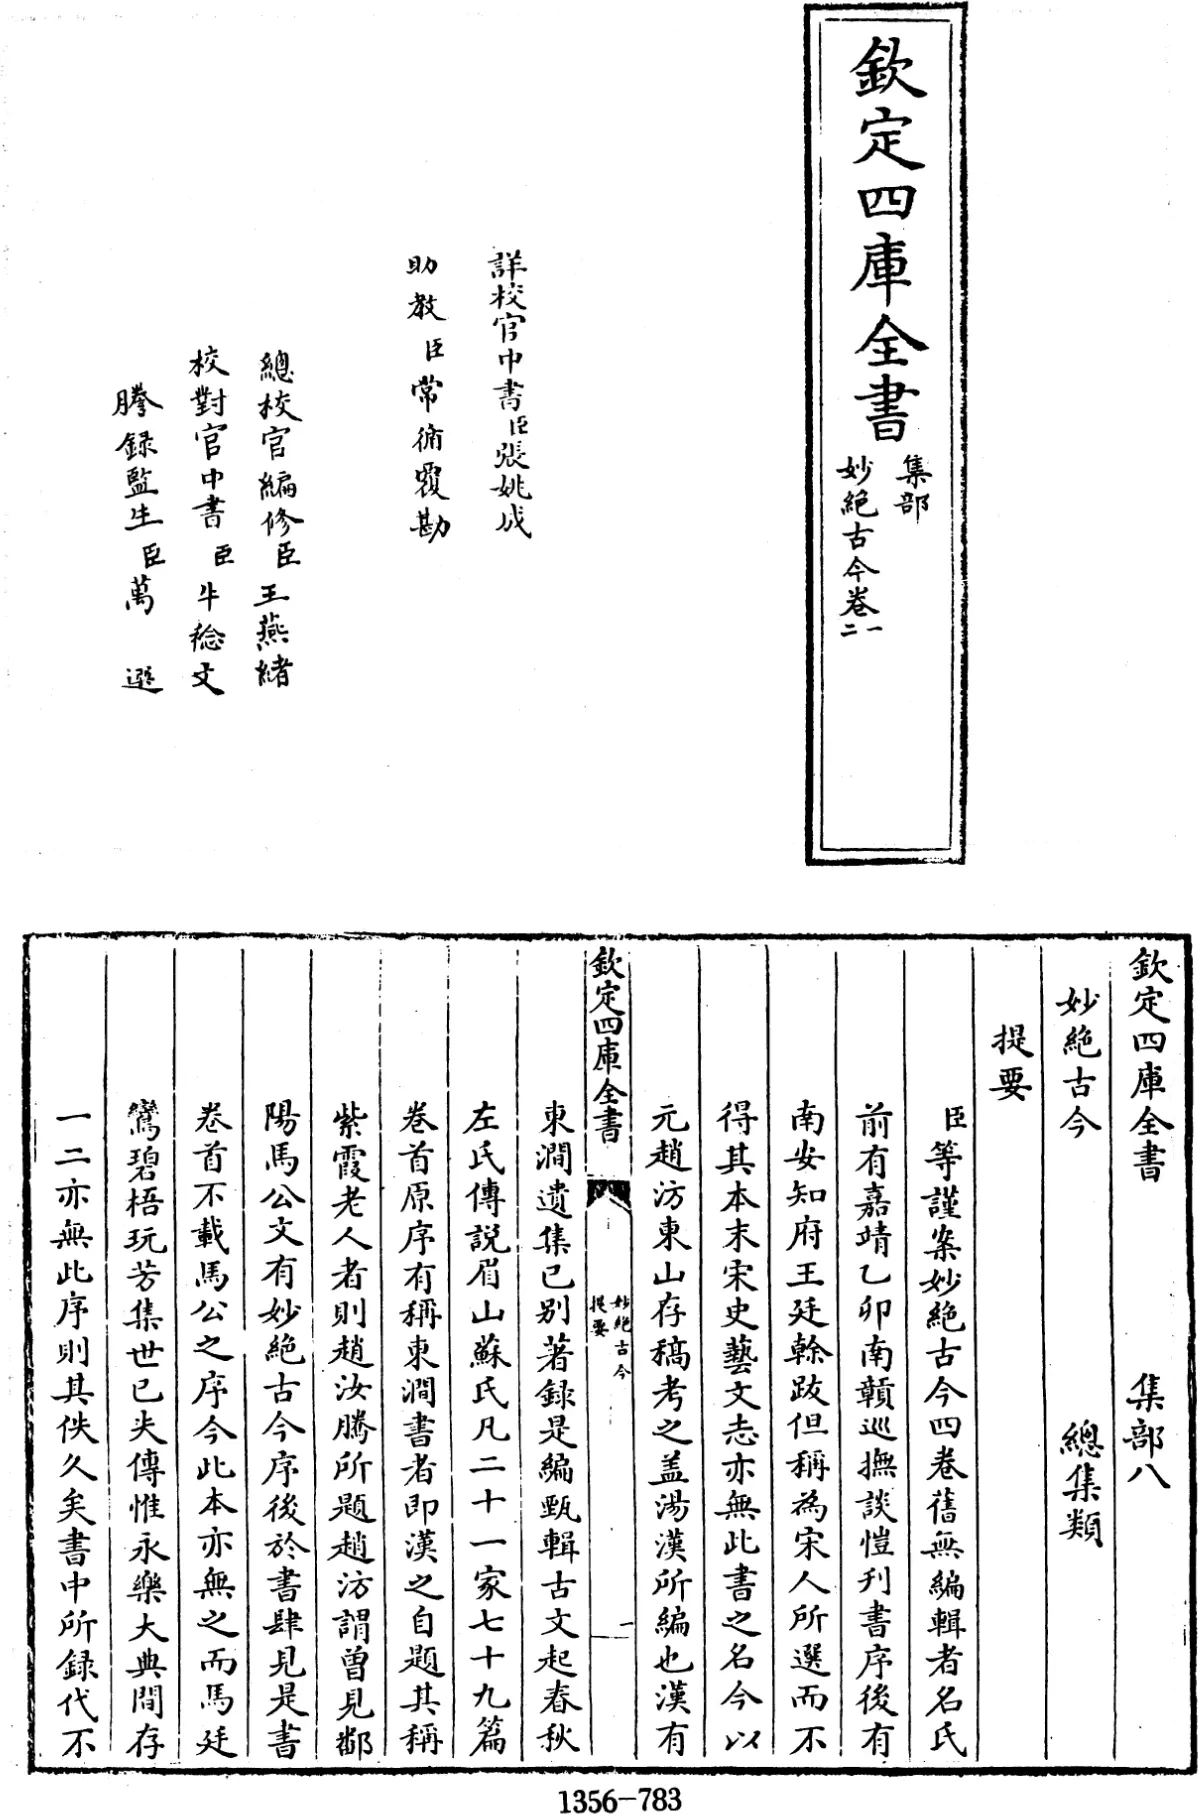 欽定四庫全書
集部
妙絶古今卷一二
詳校官中書臣張姚成
助教臣常循覆勘
總校官編修臣王燕緒
校對官中書臣牛稔文
謄録監生臣萬選
欽定四庫全書 集部八
妙絶古今 總集類
提要
臣等謹案妙絶古今四卷舊無編輯者名氏
前有嘉靖乙卯南贛巡撫談愷刋書序後有
南安知府王廷幹跋但稱為宋人所選而不
得其本末宋史藝文志亦無此書之名今以
元趙汸東山存稿考之盖湯漢所編也漢有
欽定四庫全書
妙絶古今
提要
一
東澗遺集已别著録是編甄輯古文起春秋
左氏傳説眉山蘇氏凡二十一家七十九篇
卷首原序有稱東澗書者即漢之自題其稱
紫霞老人者則趙汝騰所題趙汸謂曾見鄱
陽馬公文有妙絶古今序後於書肆見是書
卷首不載馬公之序今此本亦無之而馬廷
鸞碧梧玩芳集世已失傳惟永樂大典間存
一二亦無此序則其佚久矣書中所録代不
1356-783